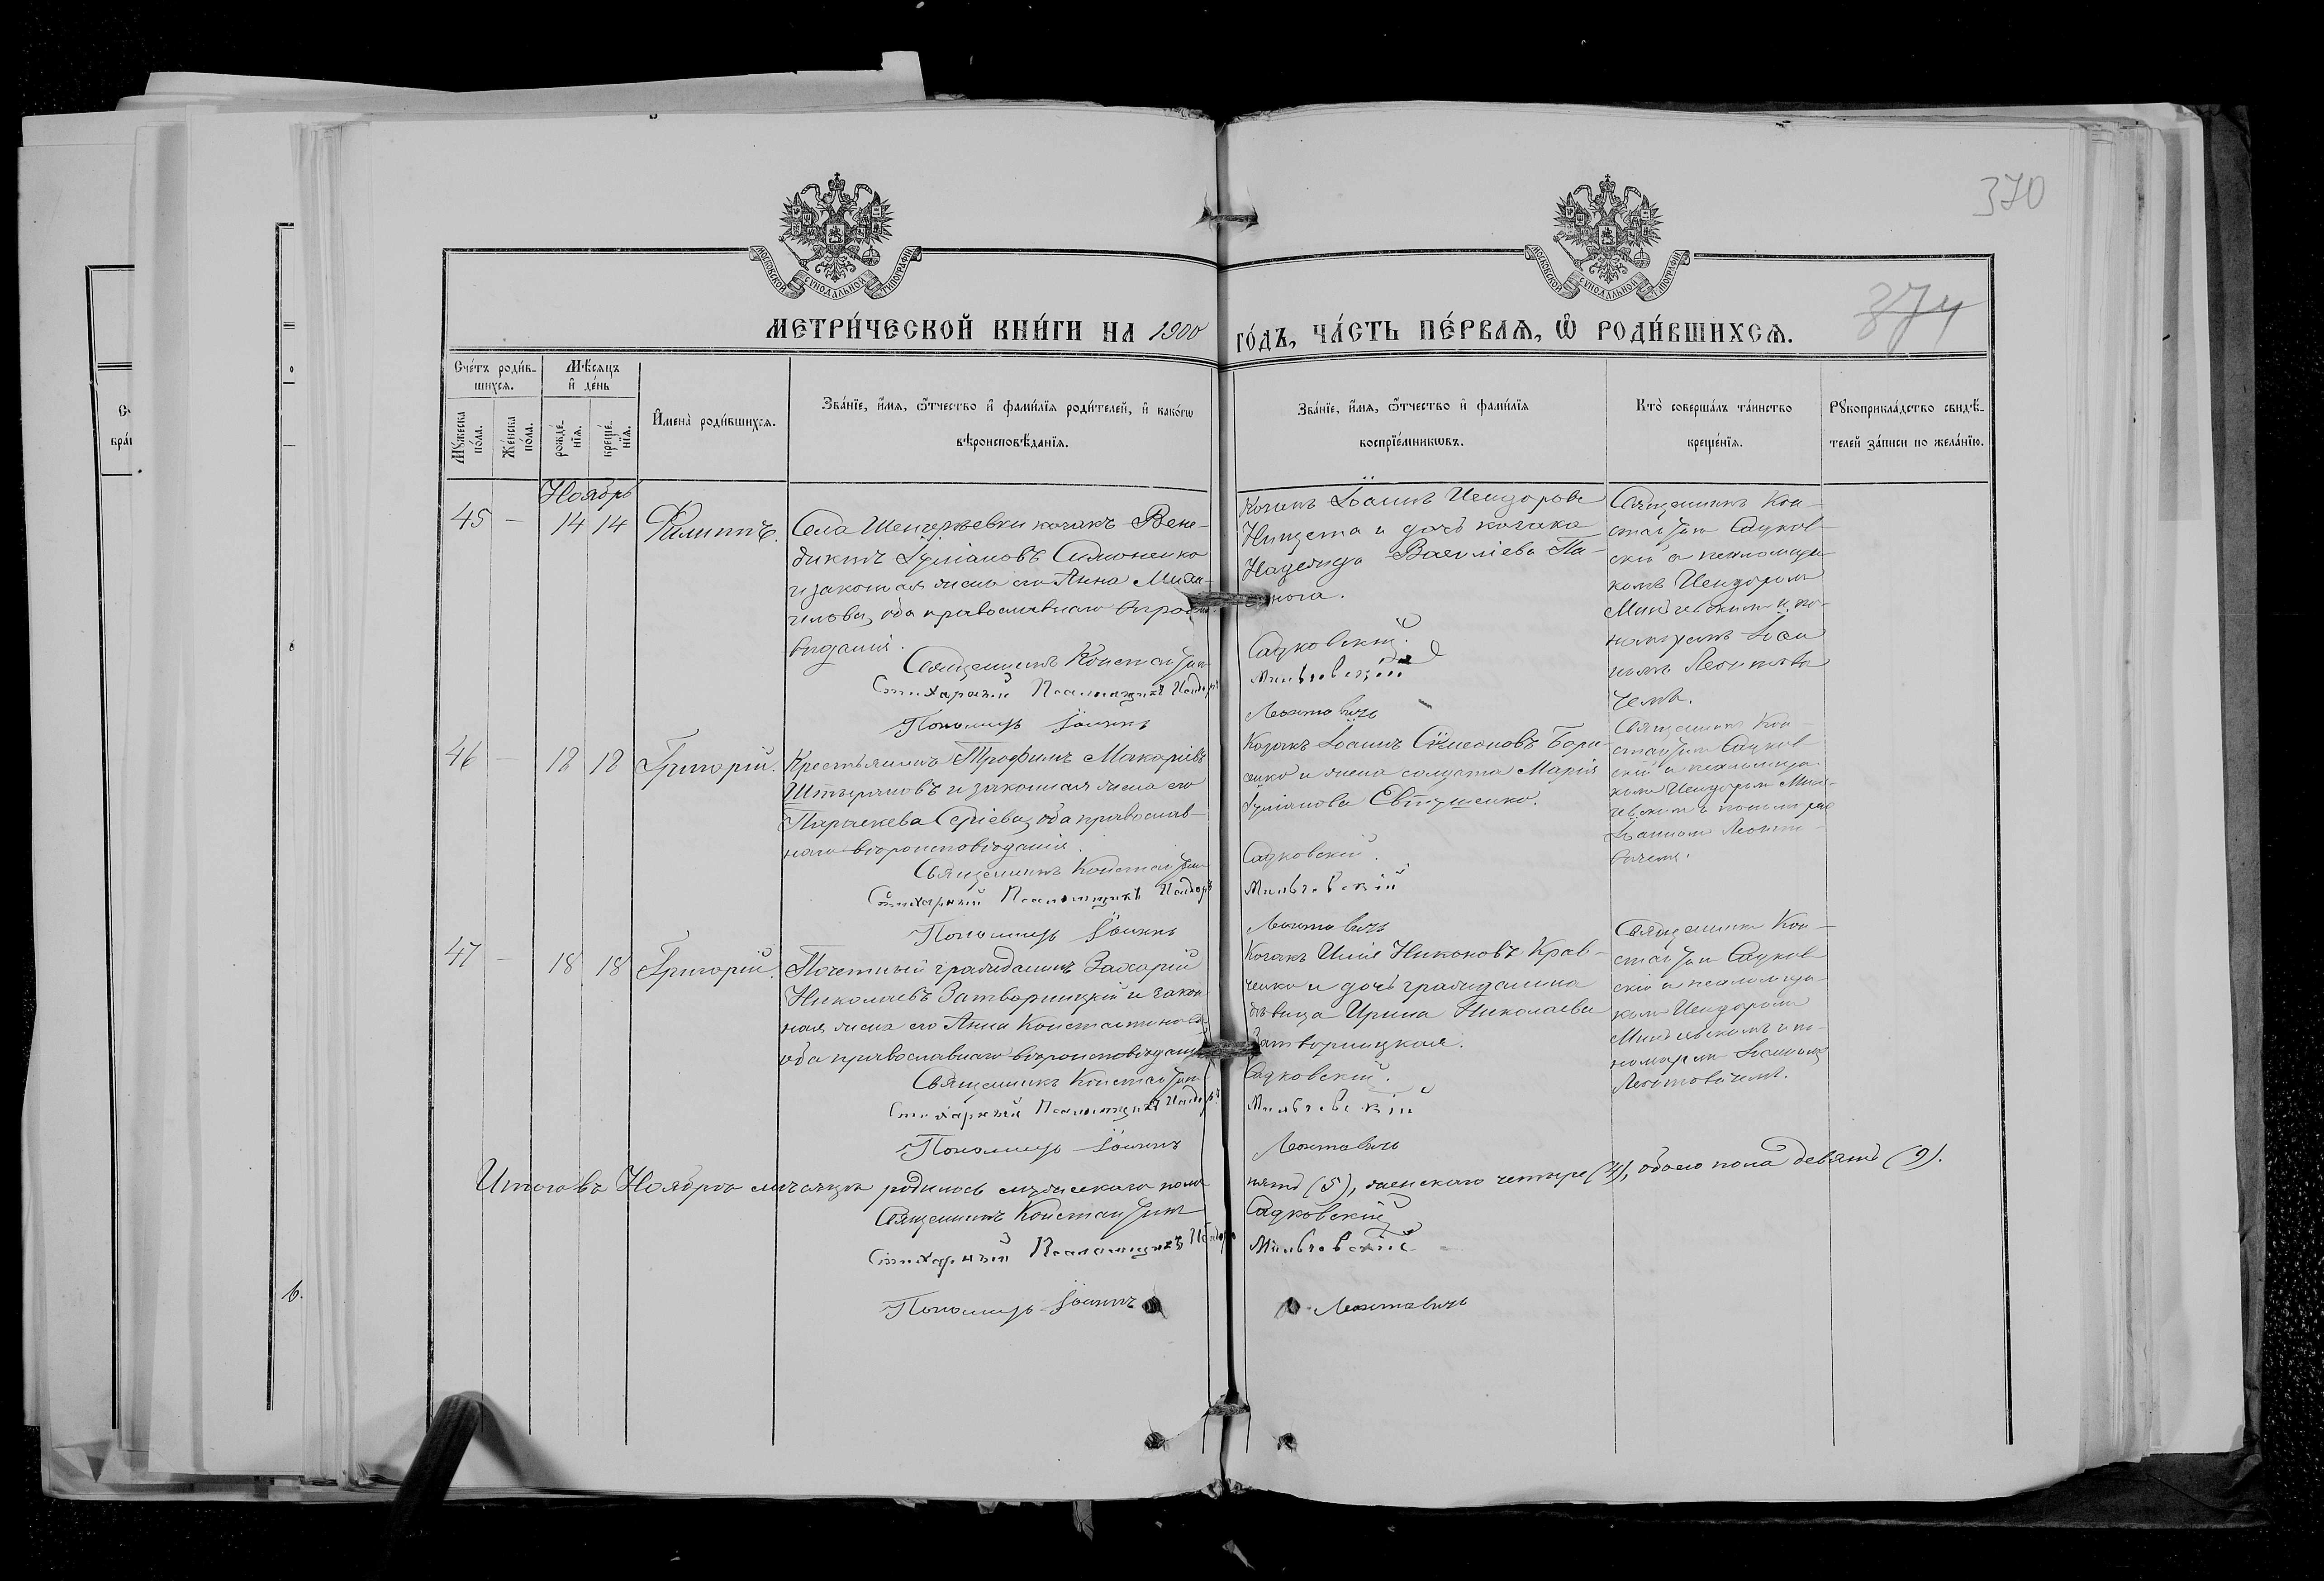 370
МОСКОВСКОЙ СѴНОДАЛЬНОЙ ТИПОГРАФІИ
МОСКОВСКОЙ СѴНОДАЛЬНОЙ ТИПОГРАФІИ
374
МЕТРИ́ЧЕСКОЙ КНИ́ГИ НА 1900 ГО́ДЪ, ЧА́СТЬ ПЕ́РВАѦ, Ѿ РОДИ́ВШИХСѦ.
Сче́тъ роди́в-
шихсѧ.
Мѣ́сѧцъ
и҆ де́нь
Мꙋ́жеска
по́ла.
Же́нска
по́ла.
рожде́-
нїѧ.
креще́-
нїѧ.
И҆мена̀ роди́вшихсѧ.
Зва́нїе, и҆́мѧ, ѻ҆́тчество и҆ фамѝлїѧ роди́телей, и҆ како́гѡ
вѣроисповѣ́данїѧ.
Зва́нїе, и҆́мѧ, ѻ҆́тчество и҆ фамѝлїѧ
воспрїе́мникѡвъ.
Кто̀ соверша́лъ та́инство
креще́нїѧ.
Рꙋкоприкла́дство свидѣ́-
телей за́писи по жела́нїю.
Ноябрь
45 — 14 14 Филиппъ.
Села козакъ Вене-
диктъ Іуліановъ Симоненко
и законная жена его Анна Миха-
илова, оба православнаго вѣроиспо-
вѣданія.
Священникъ Константин
Стихарный Псаломщикъ Исидоръ
Пономарь Іоаннъ
Козакъ Іоаннъ Исидоровъ
и дочь козака
Надежда Василіева
Садковскій.
Леонтовичъ
Священникъ Кон-
стантин Садков-
скій с псаломщи-
комъ Исидоромъ
и по-
номаремъ Іоан
номъ Леонтови
чемъ.
46 — 12 12 Григорій.
Крестьянинъ Трофимъ Макаріевъ
и законная жена его
Параскева Сергіева, оба православ-
наго вѣроисповѣданія.
Священникъ Константин
Стихарный Псаломщикъ Исидоръ
Пономарь Іоаннъ
Козакъ Іоаннъ Сѵмеоновъ Бори-
сенко и жена солдата Марія
Іуліанова Евтушенко.
Садковскій.
Леонтовичъ
Священникъ Кон-
стантин Садков-
скій с псаломщи-
комъ Исидоромъ
пономаремъ
Іоанномъ Леонто-
вичемъ.
47 — 18 18 Григорій.
Почетный гражданинъ Захарій
Николаевъ Затворницкій и закон
ная жена его Анна Константинова,
оба православнаго вѣроисповѣданія
Священникъ Константин
Стихарный Псаломщикъ Исидоръ
Пономарь Іоаннъ
Козакъ Илія Никоновъ Крав-
ченко и дочь гражданина
дѣвица Ирина Николаева
Затворницкая.
Садковскій.
Леонтовичъ
Священникъ Кон-
стантин Садков-
скій с псаломщи-
комъ Исидоромъ
и по-
номаремъ Іоанномъ
Леонтовичемъ.
Итого въ Ноябрѣ мѣсяцѣ родилось мужескаго пола пять (5), женскаго четыре (4), обоего пола девять (9).
Священникъ Константин Садковскій
Стихарный Псаломщикъ Исидоръ
Пономарь Іоаннъ Леонтовичъ